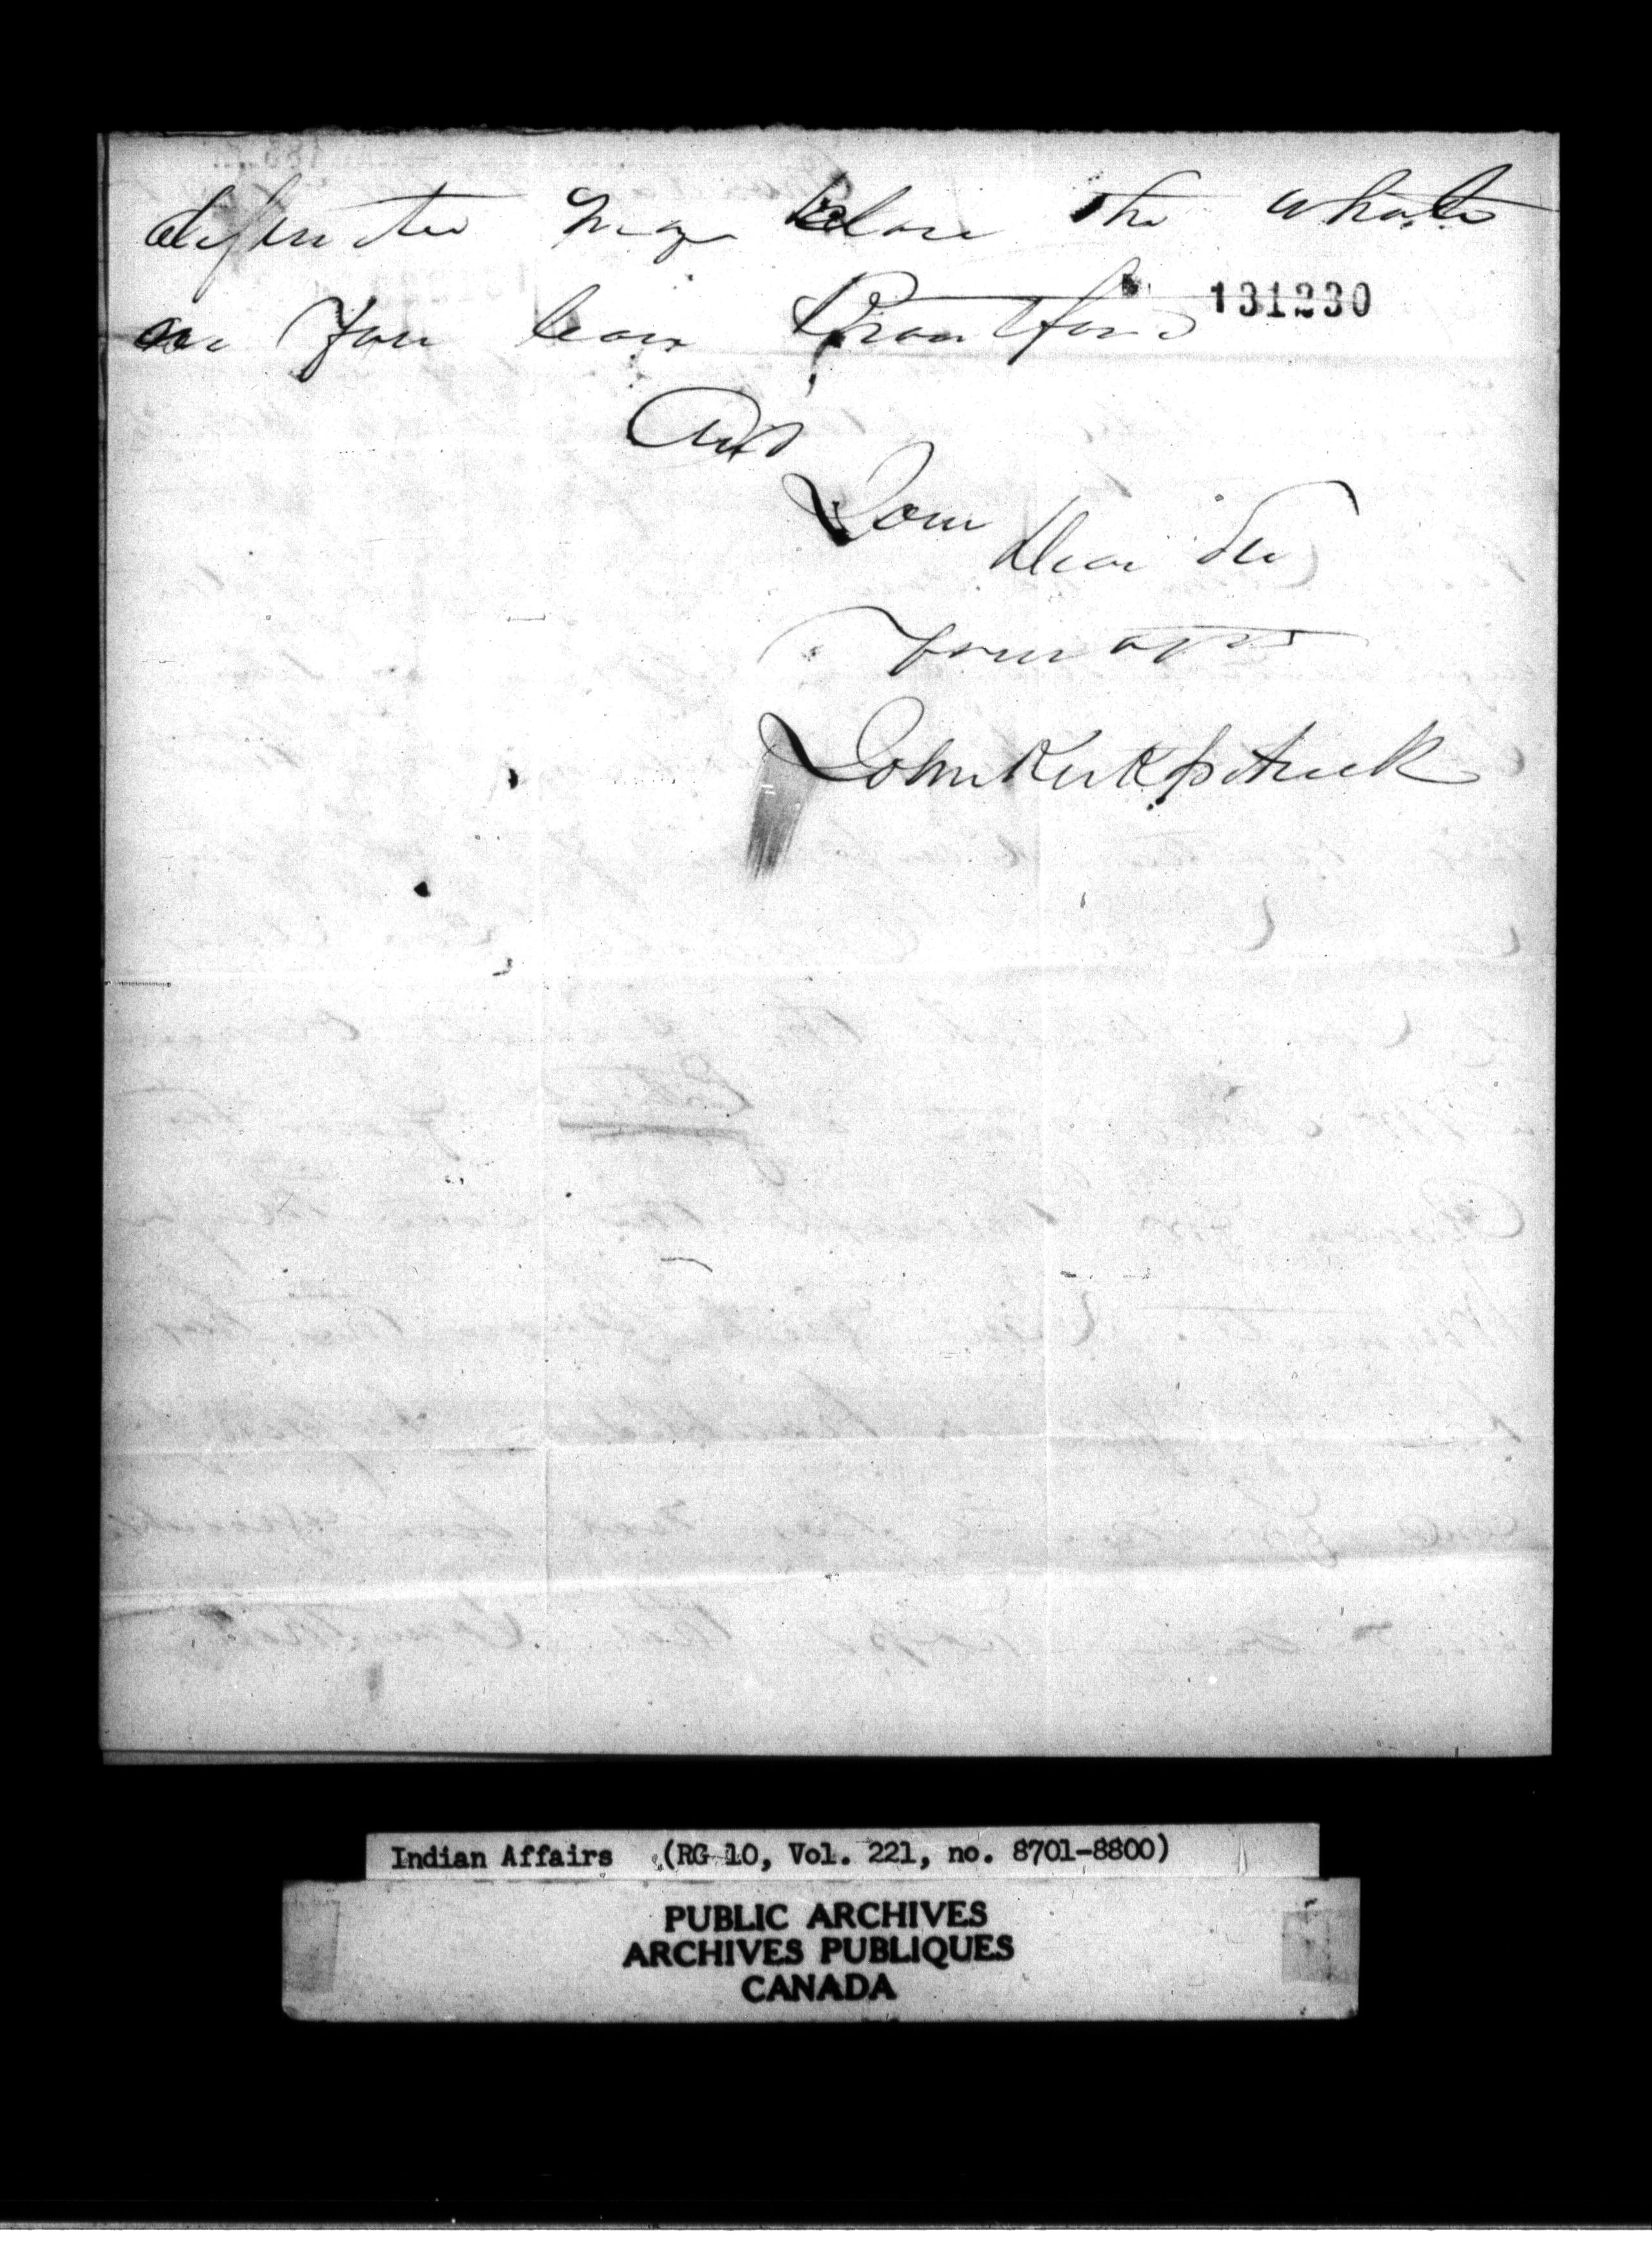 disputes may close the whole
you leave Brantford
131230
And
I am
Dear Sir
Yours
John Kirkpatrick
Indian Affairs (RG 10, Vol. 221, no. 8701-8800)
PUBLIC ARCHIVES
ARCHIVES PUBLIQUES
CANADA